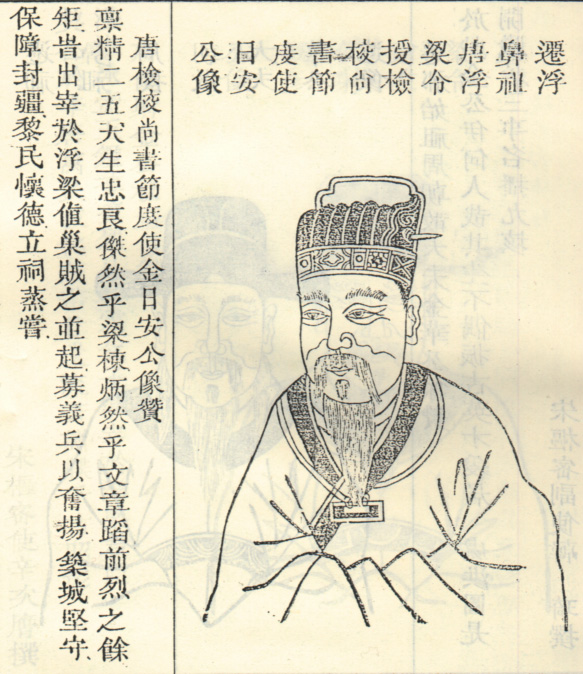 遷浮
鼻祖
唐浮
梁令
授檢
校尚
書節
度使
日安
公像
唐檢校尚書節度使金日安公像贊
稟精二五天生忠良傑然乎梁棟炳然乎文章蹈前烈之餘
矩昔出宰於浮梁值巢賊之並起募義兵以奮揚築城堅守
保障封疆黎民懷德立祠蒸嘗